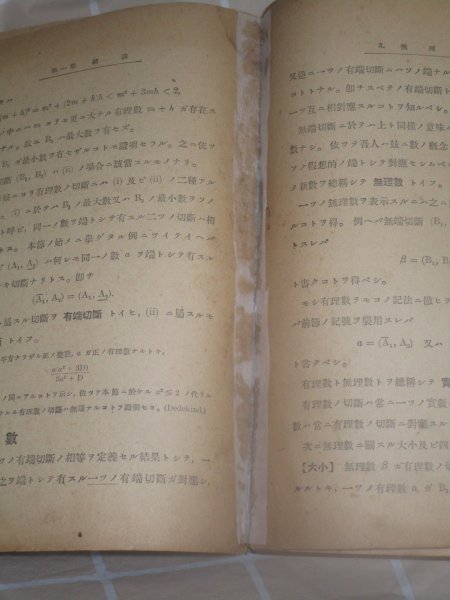 第一章 緒論
(m+h)² = m² + (2m+h)h < m² + 3mh < 2,
m ヨリモ更ニ大ナル有理數 m+h ガ存在ス
故ニ B₁ ハ最大數ヲ有セズ。
B₂ ガ最小數ヲ有セザルコトモ證明セラル。之ニ依ツ
切斷 (B₁, B₂) ハ (ii) ノ場合ニ該當スルモノナリ。
有理數ノ切斷ニハ (i) 及ビ (ii) ノ二種アル
(i) ニ於テハ B₁ ノ最大數又ハ B₂ ノ最小數ヲソノ
ト呼ビ, 同一ノ數ヲ端トシテ有スル二ツノ切斷ハ相
トス。本節ノ始メニ擧ゲタル例ニツイテイヘバ
(A₁, A₂) ハ何レモ同一ノ數 a ヲ端トシテ有スル
シキ切斷ナリトス。卽チ
(A̅₁, A₂) = (A₁, A̲₂).
ニ屬スル切斷ヲ 有端切斷 トイヒ, (ii) ニ屬スルモ
斷 トイフ。
平方ナラザル正ノ整數, a ガ正ノ有理數ナルトキ,
a(a² + 3D)
3a² + D
ノ間ニアルコトヲ示シ, 依ツテ本節ニ於ケル
有理數ノ切斷ハ無端ナルコトヲ證明セヨ。(Dedekind.)
數
ツノ有端切斷ノ相等ヲ定義セル結果トシテ, 一
之ヲ端トシテ有スル一ツノ有端切斷ガ對應シ,
2. 無理
又逆ニ一ツノ有端切斷ニハソノ端ナル
コトトナル。卽チスベテノ有端切斷ト
一ツ互ニ相對應スルコトヲ知ルベシ。
無端切斷ニ於テハ上ト同樣ノ意味
數ナシ。依ツテ吾人ハ茲ニ數ノ概念
ツノ假想的ノ端トシテ對應セシムベ
ノ新數ヲ總稱シテ 無理數 トイフ。
一ツノ無理數ヲ表示スルニハ之ニ
ルコトヲ得。例ヘバ無端切斷 (B₁,
トスレバ
β = (B₁, B
ト書クコトヲ得ベシ。
モシ有理數ヲモコノ記法ニ倣ヒ
バ前節ノ記號ヲ襲用スレバ
a = (A̅₁, A₂) 又ハ
ト書クベシ。
有理數ト無理數トヲ總稱シテ
有理數ノ切斷ハ常ニ一ツノ實數
數ハ常ニ有理數ノ切斷ニ對應スル
次ニ無理數ニ關スル大小及ビ四
【大小】 無理數 β ガ有理數ノ切
ルルトキ, 一ツノ有理數 a ガ B₁